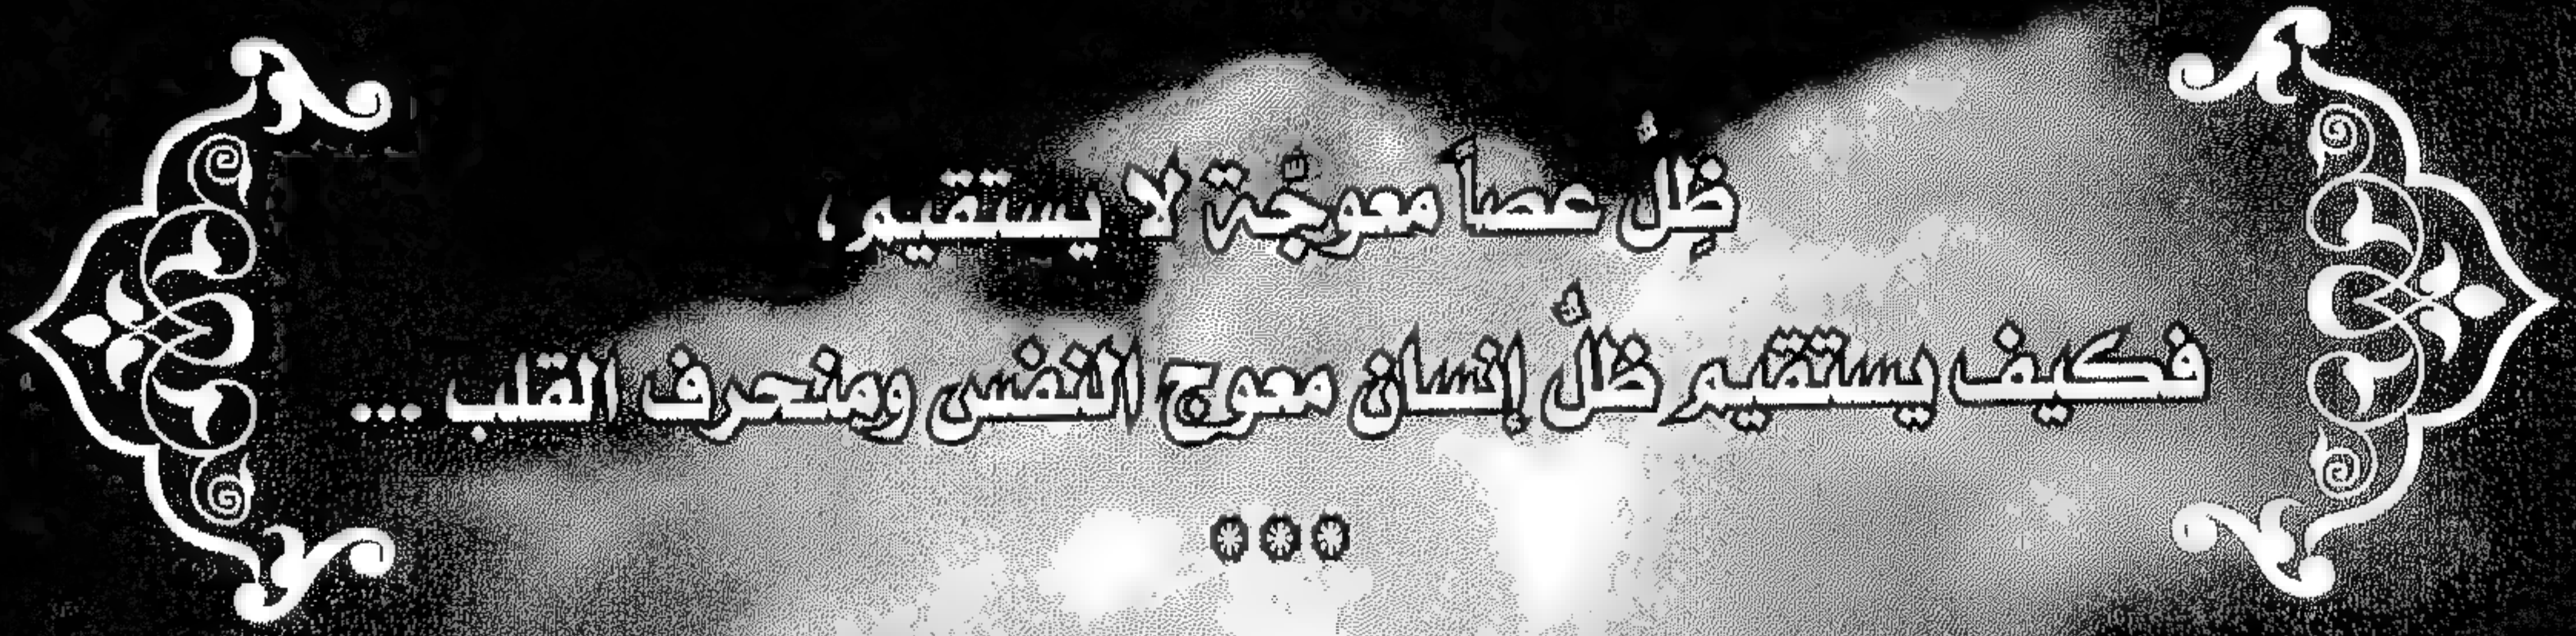 ظِلُّ عصاً معوجَّة لا يستقيم،
فكيف يستقيم ظلُّ إنسان معوج النفس ومنحرف القلب ...
***